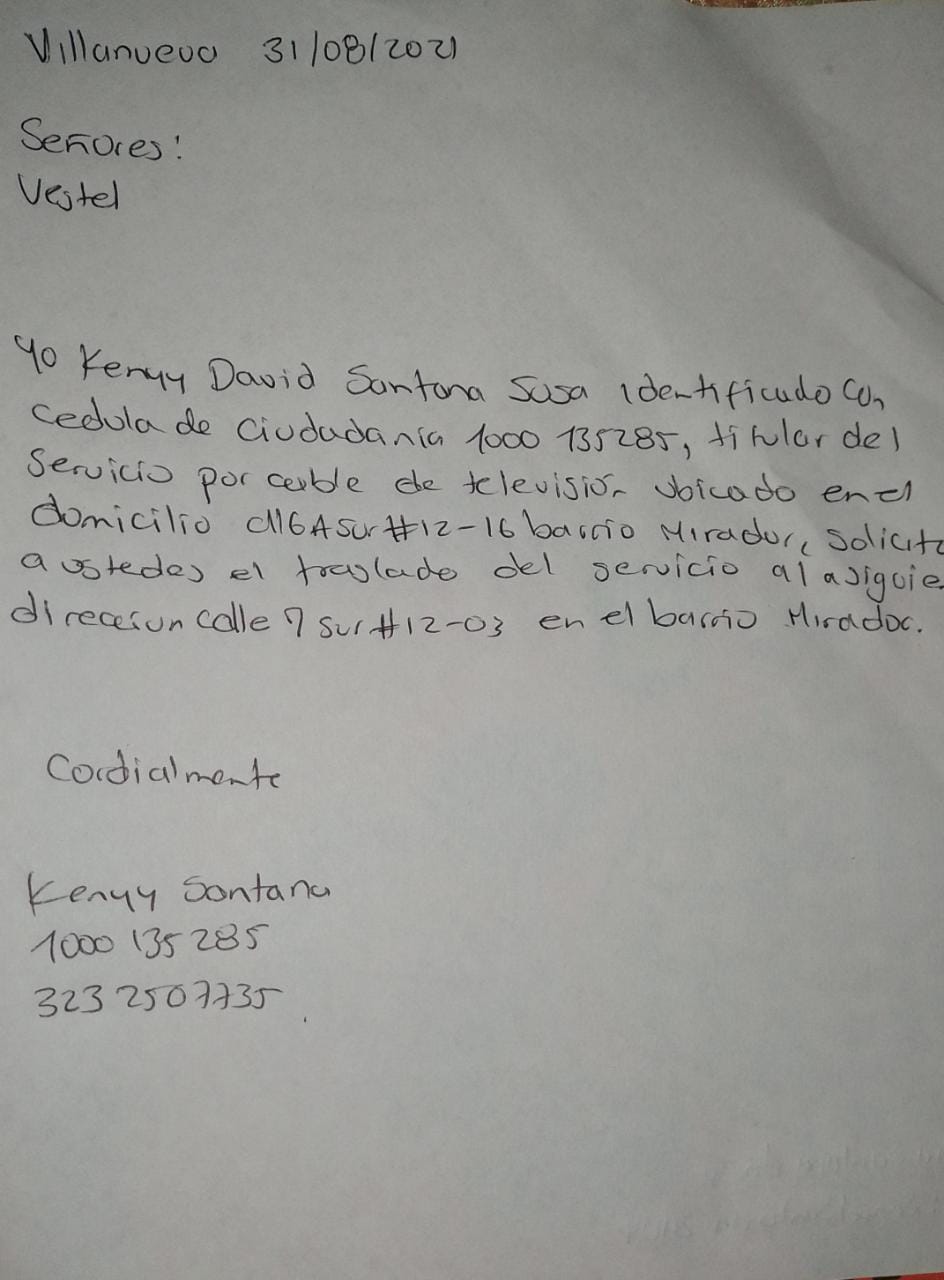 Villanueva 31/08/2021
Señores:
Vestel
Yo Kenyy David Santana Susa identificado con
cedula de ciudadania 1000 135285, titular del
servicio por cable de television ubicado en el
domicilio cll6A sur #12-16 barrio Mirador, solicito
a ustedes el traslado del servicio al a siguie
direcesun calle 7 sur #12-03 en el barrio Mirador.
Cordialmente
Kenyy Santana
1000 135 285
323 2507735